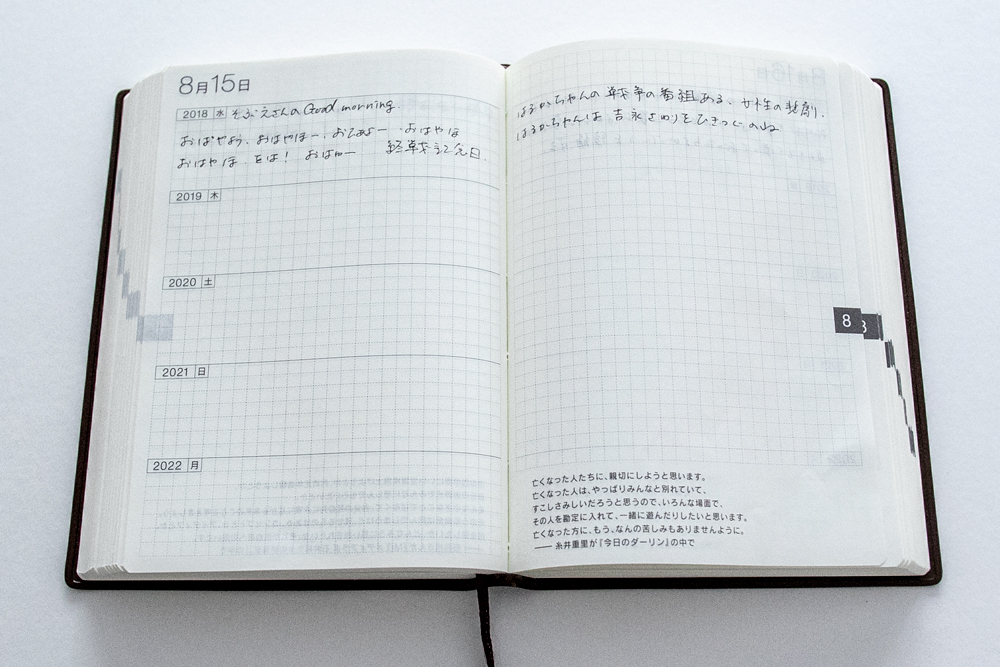 8月15日
2018 水 そぶえさんの Good morning.
おはせよう、おはやほー、おてあよー・おはやほ
おはやほ、をは! おはゅー 終戦記念日.
2019 木
2020 土
2021 日
2022 月
はるかちゃんの 戦争の番組ある、女性の悲劇.
はるかちゃんは 吉永さゆりをひきつぐのね
8
亡くなった人たちに、親切にしようと思います。
亡くなった人は、やっぱりみんなと別れていて、
すこしさみしいだろうと思うので、いろんな場面で、
その人を勘定に入れて、一緒に遊んだりしたいと思います。
亡くなった方に、もう、なんの苦しみもありませんように。
── 糸井重里が『今日のダーリン』の中で